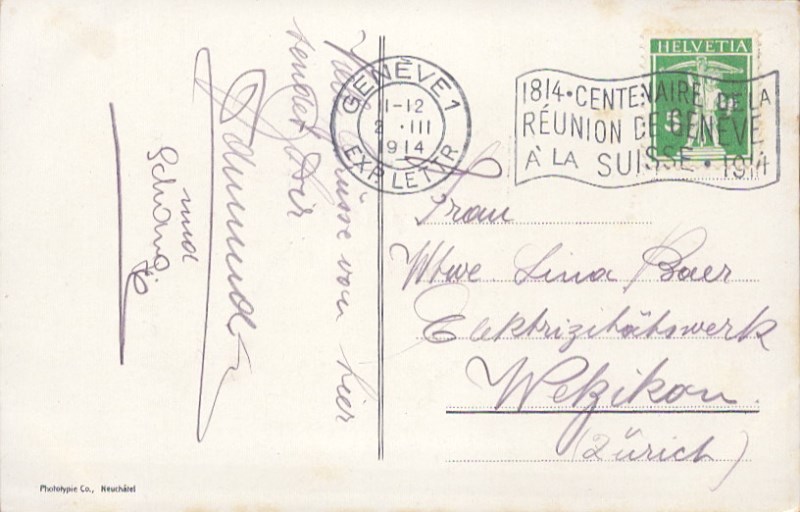 HELVETIA
5
GENÈVE 1
11-12
2 . III
1914
EXP. LETTR
1814 • CENTENAIRE DE LA
RÉUNION DE GENÈVE
À LA SUISSE • 1914
Viele Grüsse von hier
sendet Dir
Edmund
und
Frau
Wtwe Lina Baer
Elektrizitätswerk
Wetzikon.
(Zürich)
Phototypie Co., Neuchâtel